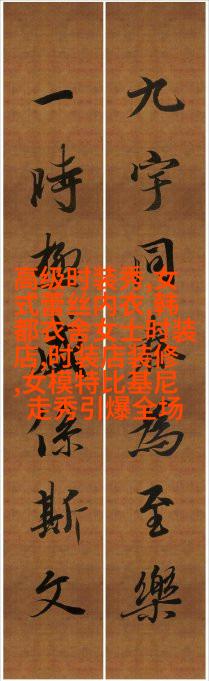 九宇同為至樂
一時係斯文
高级时装秀,女
式蕾丝内衣,韩
都衣舍女士时装
店,时装店装修
,女模特比基尼
走秀引爆全场